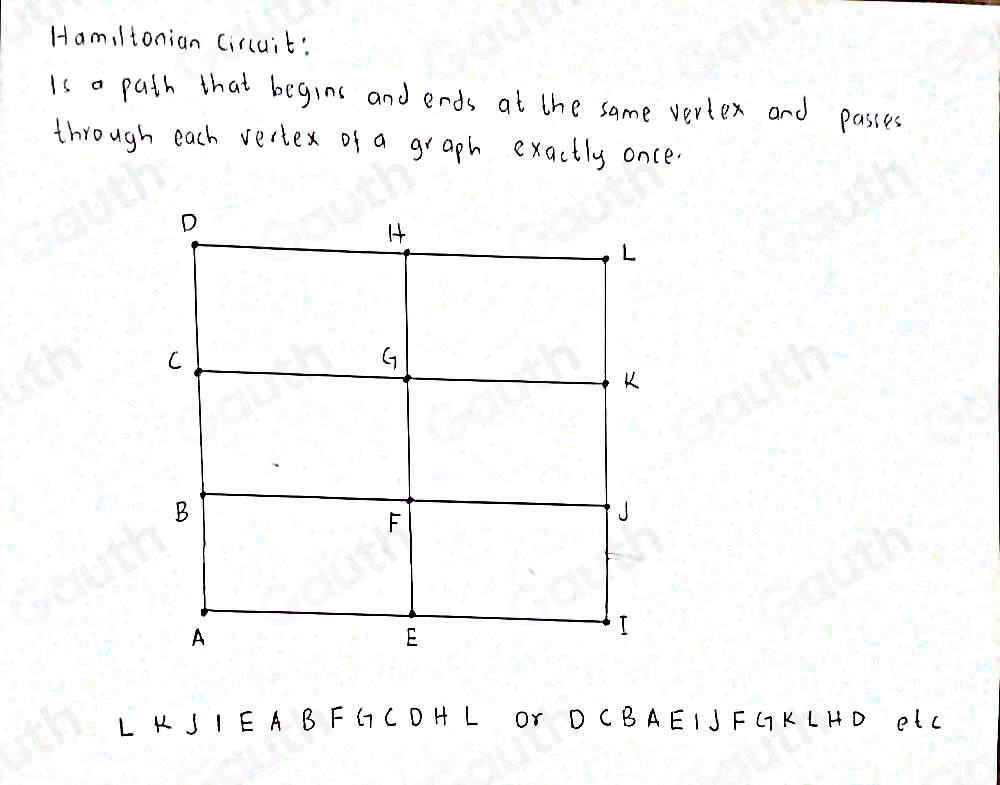 Hamiltonian Circuit:
Is a path that begins and ends at the same vertex and passes
through each vertex of a graph exactly once.
D H L
C G K
B F J
A E I
L K J I E A B F G C D H L or D C B A E I J F G K L H D etc